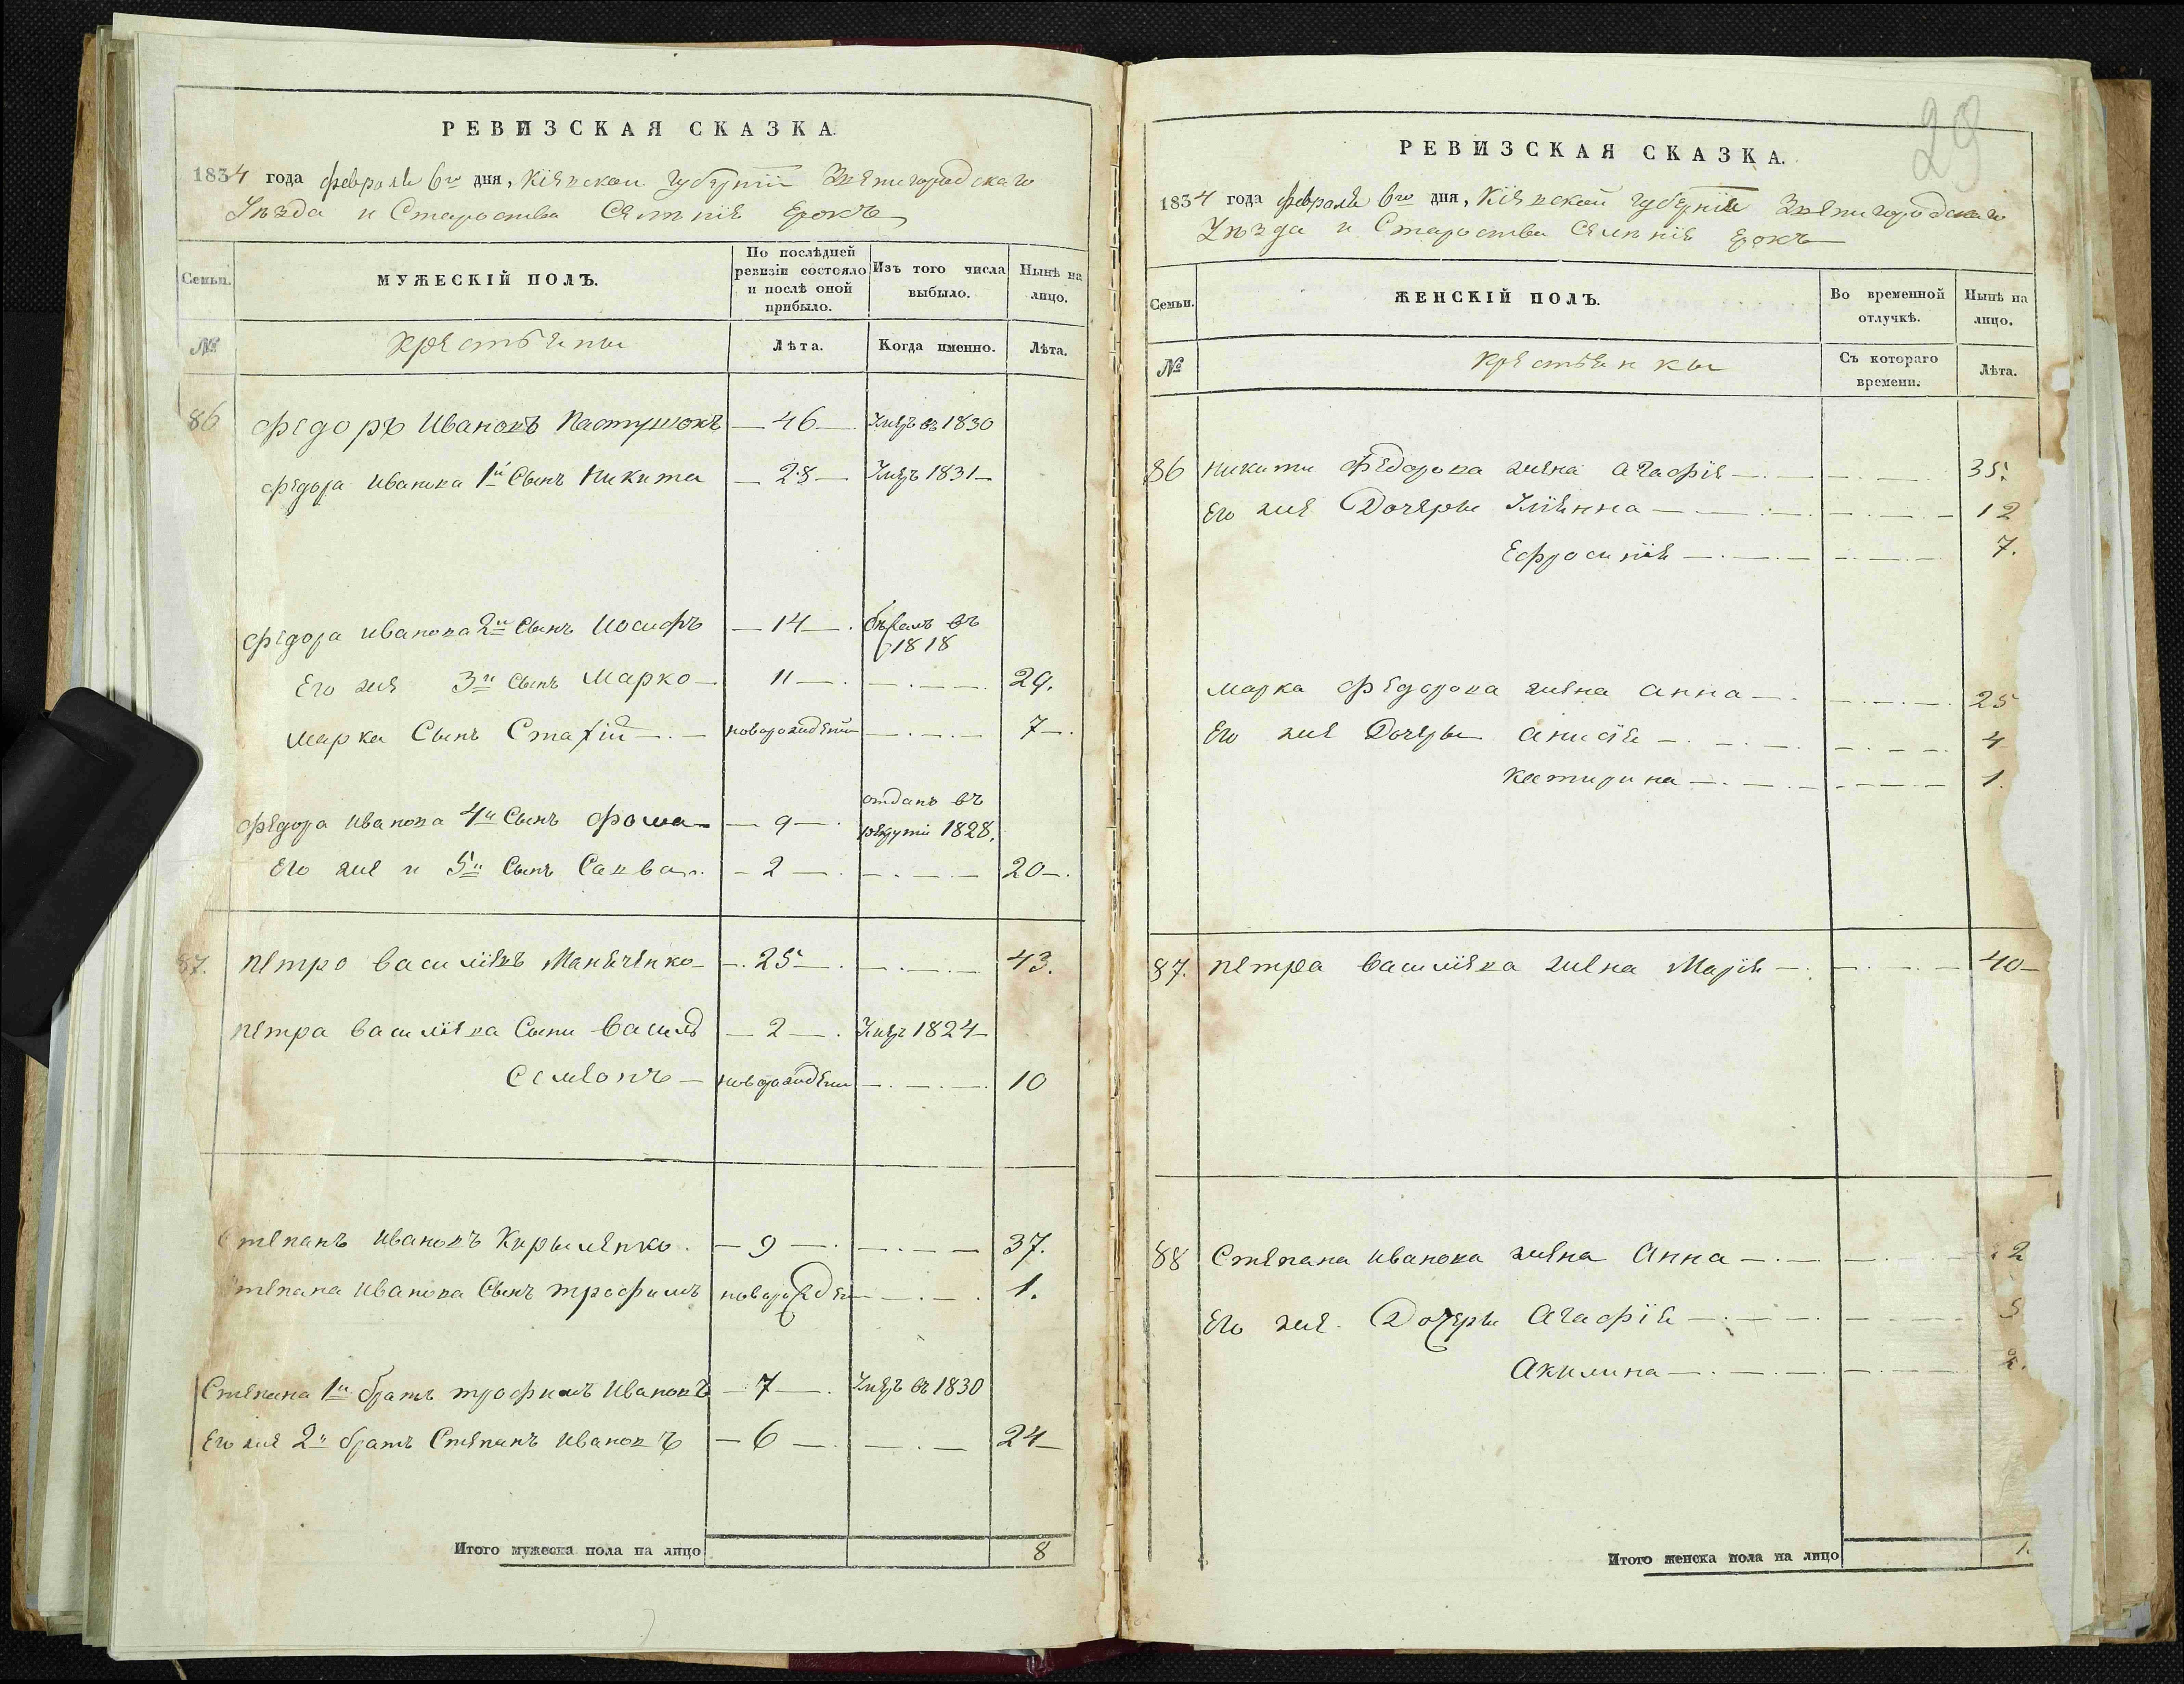 РЕВИЗСКАЯ СКАЗКА
1834 года февраля 6го дня, Кіевской губерніи Звенигородскаго
Уѣзда и Староства Селенія Ерокъ
Семьи. МУЖЕСКІЙ ПОЛЪ. По послѣдней ревизіи состояло и послѣ оной прибыло. Изъ того числа выбыло. Нынѣ на лицо.
№ Крестьяны Лѣта. Когда именно. Лѣта.
86 Федоръ Ивановъ Пастушокъ — 46 — Умеръ въ 1830
Федора Иванова 1й Сынъ Никита — 28 — Умеръ 1831 —
Федора Иванова 2й Сынъ Иосифъ — 14 — . бѣжалъ въ 1818
Его же 3й Сынъ Марко — 11 — . — . — . — . 29.
Марка Сынъ Стахій — . — новорожденъ — . — . — 7 — .
Федора Иванова 4й Сынъ Фома — — 9 — . отданъ въ рекруты 1828.
Его же и 5й Сынъ Савва — 2 — . — . — . — 20 — .
87. Петро Василіевъ Манзченко — — . 25 — . — . — . — 43.
Петра Василіева Сыны Василь — 2 — . Умеръ 1824 —
Семіонъ — новорожденъ — . — . — . 10
Степанъ Ивановъ Кирыленко . — 9 — . — . — . — 37.
Степана Иванова Сынъ Трофимъ новорожден — . — . 1.
Степана 1й братъ Трофимъ Ивановъ — 7 — . Умеръ въ 1830
Его же 2й братъ Степанъ Ивановъ — 6 — . — . — 24 —
Итого мужеска пола на лицо 8
29
РЕВИЗСКАЯ СКАЗКА.
1834 года февраля 6го дня, Кіевской губерніи Звенигородскаго
Уѣзда и Староства Селенія Ерокъ
Семьи. ЖЕНСКІЙ ПОЛЪ. Во временной отлучкѣ. Нынѣ на лицо.
№ Крестьянкы Съ котораго времени. Лѣта.
86 Никиты Федорова жена Агафія — . — — . — . 35.
Его же Дочеры Уліянна — — . — — . — . — 12
Ефросинія — . — . — — . — . 7.
Марка Федорова жена Анна — . — . — . — 25
Его же Дочеры Анисія — . — . — . — . — . — . 4
Катирина — . — . — . — . — 1.
87. Петра Василіева жена Марія — . — . — . — 40 —
88 Степана Иванова жена Анна — . — — .
Его же . Дочеры Агафія — . — . — . — . — 5
Акилина — . — . — — . — . 2.
Итого женска пола на лицо